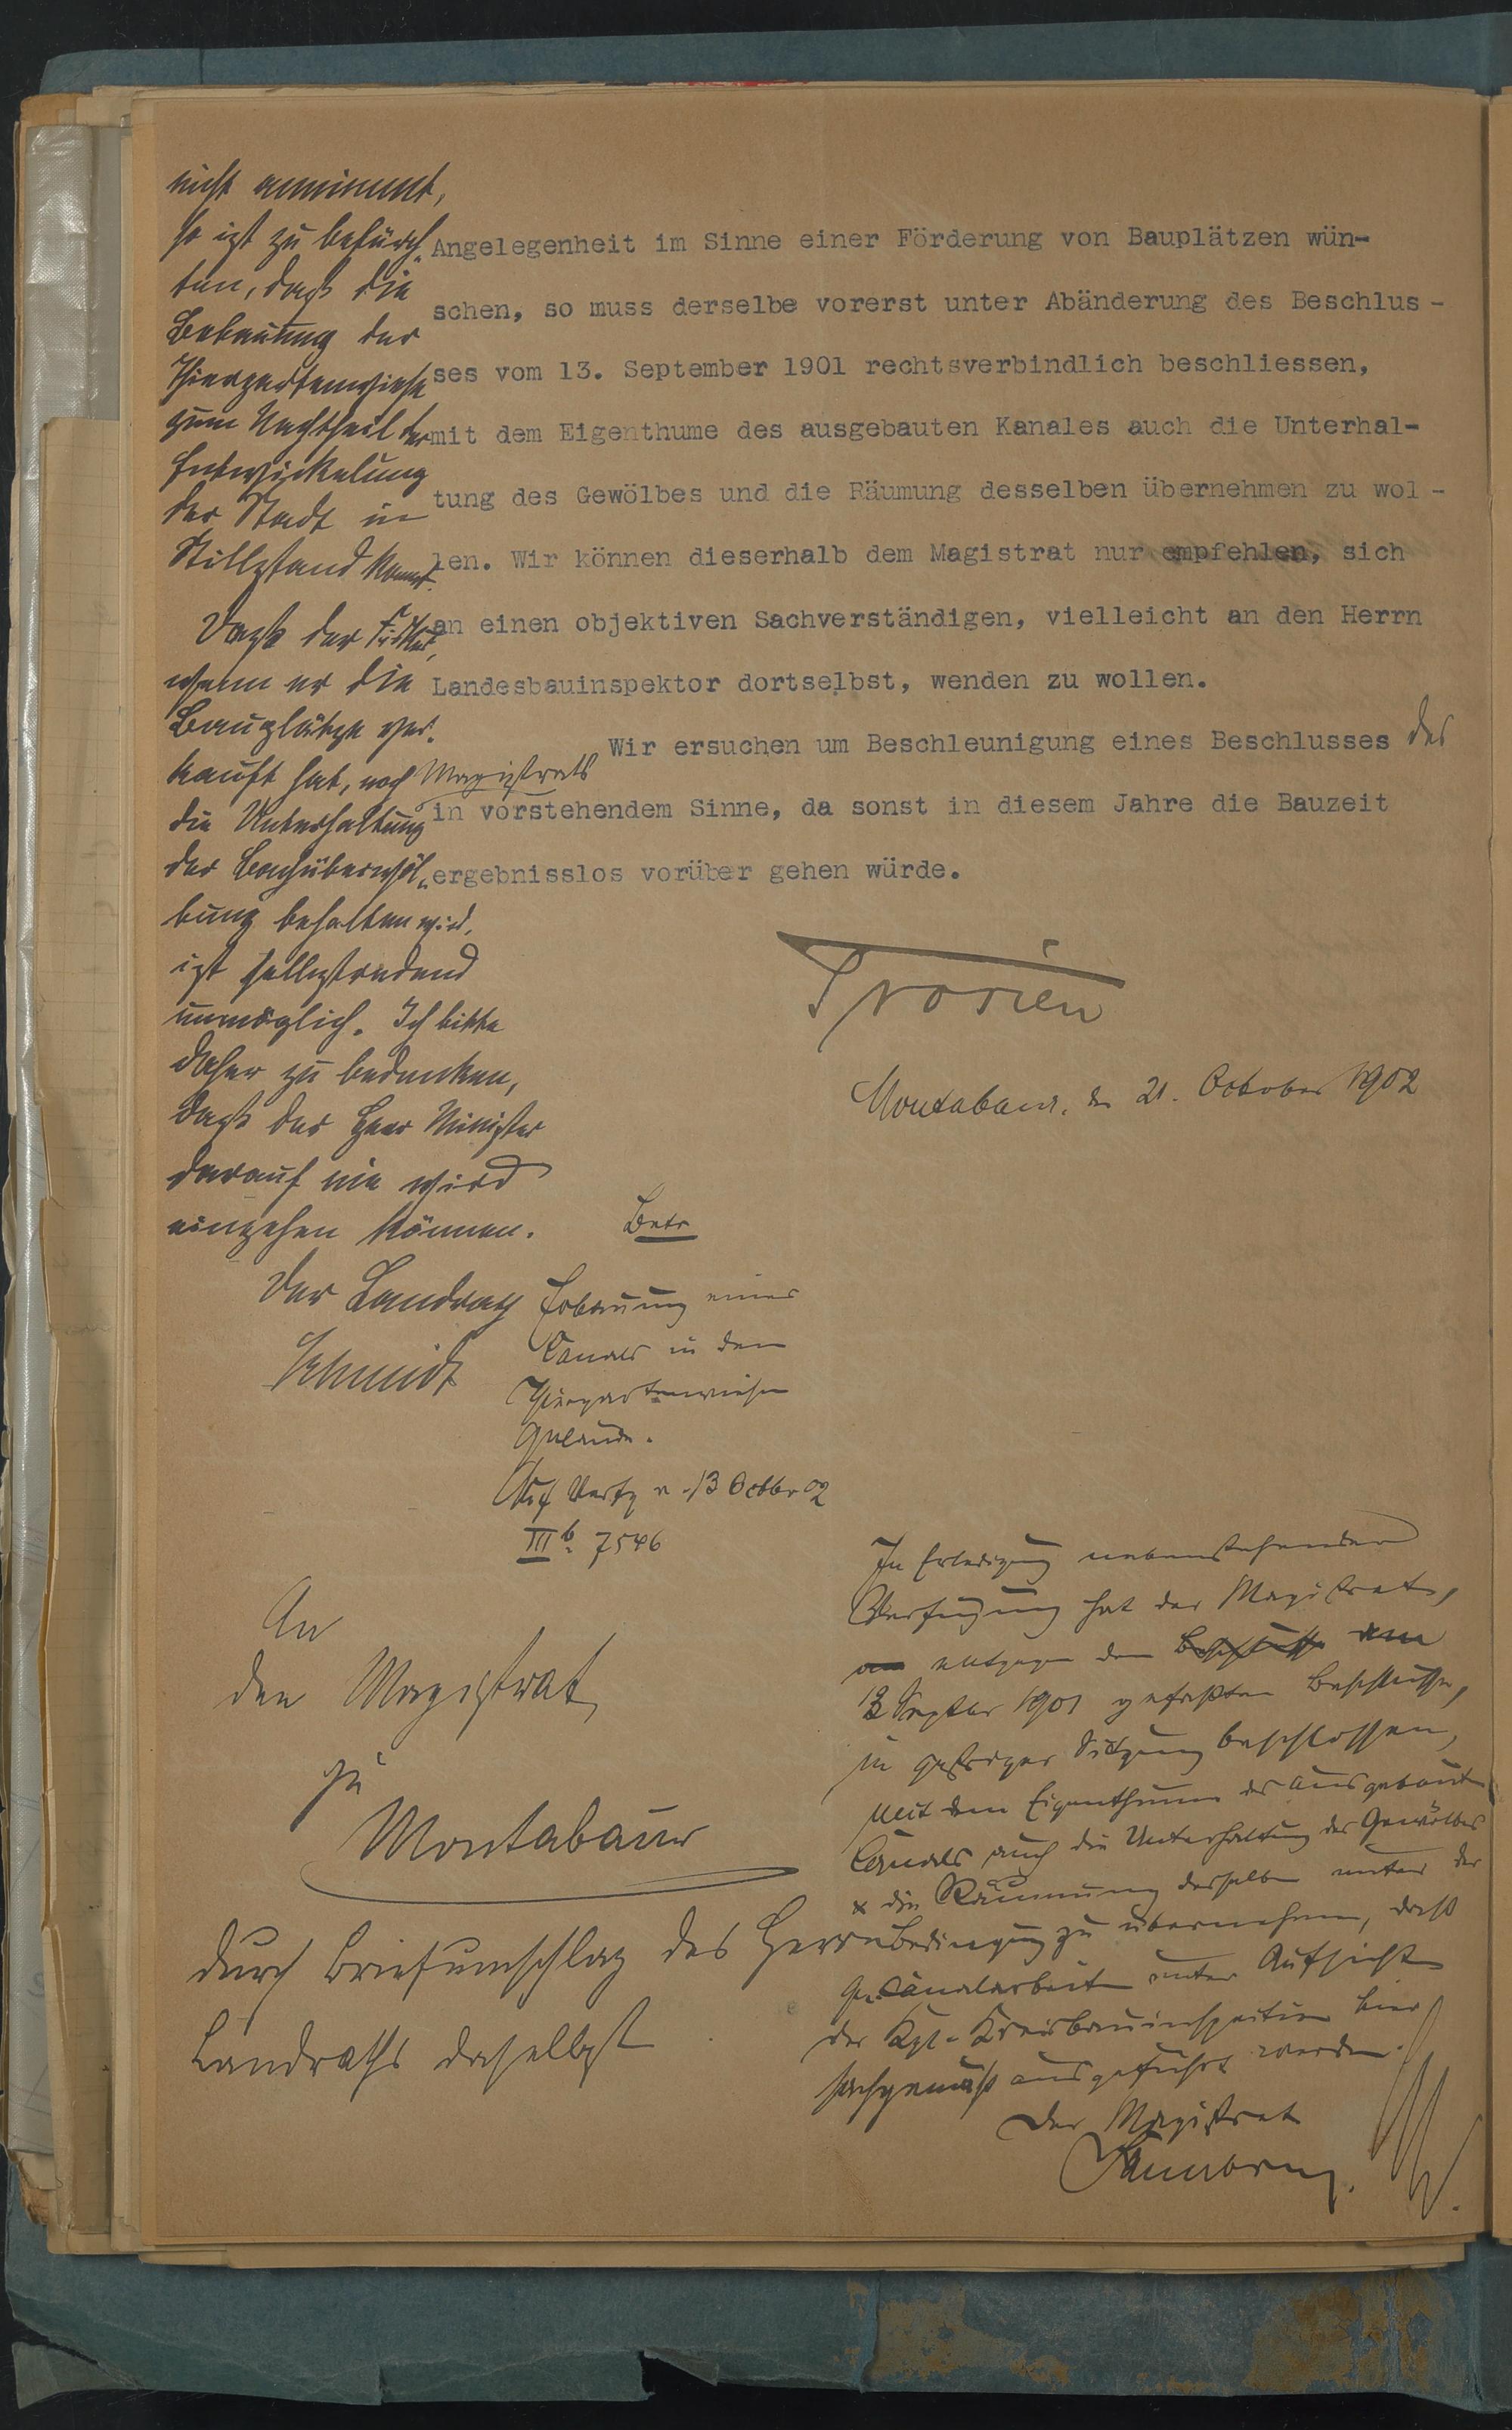 nicht annimmt,
so ist zu befürch-
ten, dass die
Bebauung der
Thiergartenwiese
zum Nachtheil der
Entwickelung
der Stadt in
Stillstand kommt.
Dass der Fiskus,
wenn er die
Bauplätze ver-
kauft hat, noch
die Unterhaltung
der Bachüberwöl-
bung behalten wird,
ist selbstredend
unmöglich. Ich bitte
daher zu bedenken,
dass der Herr Minister
darauf nie wird
eingehen können.
Der Landrath
Schmidt
Angelegenheit im Sinne einer Förderung von Bauplätzen wün-
schen, so muss derselbe vorerst unter Abänderung des Beschlus-
ses vom 13. September 1901 rechtsverbindlich beschliessen,
mit dem Eigenthume des ausgebauten Kanales auch die Unterhal-
tung des Gewölbes und die Räumung desselben übernehmen zu wol-
len. Wir können dieserhalb dem Magistrat nur empfehlen, sich
an einen objektiven Sachverständigen, vielleicht an den Herrn
Landesbauinspektor dortselbst, wenden zu wollen.
Wir ersuchen um Beschleunigung eines Beschlusses des
Magistrats
in vorstehendem Sinne, da sonst in diesem Jahre die Bauzeit
ergebnisslos vorüber gehen würde.
Trosien
An
den Magistrat
zu
Montabaur
durch Briefumschlag des Herrn
Landraths daselbst
Montabaur, d 21. October 1902
Betr
Erbauung eines
Canals in dem
Thiergartenwiesen
Gelände.
Auf Verfg v. 13 Octbr 02
III b. 7546
In Erledigung nebenstehender
Verfügung hat der Magistrat,
entgegen dem Beschlusse am
13 Septbr 1901 gefaßten Beschlusse,
in gestriger Sitzung beschlossen,
mit dem Eigenthum des ausgebauten
Canals auch die Unterhaltung des Gewölbes
& die Räumung desselben unter der
Bedingung zu übernehmen, daß
Canalarbeiten unter Aufsicht
der Kgl. Kreisbauinspektion hier
sachgemäß ausgeführt werden.
Der Magistrat